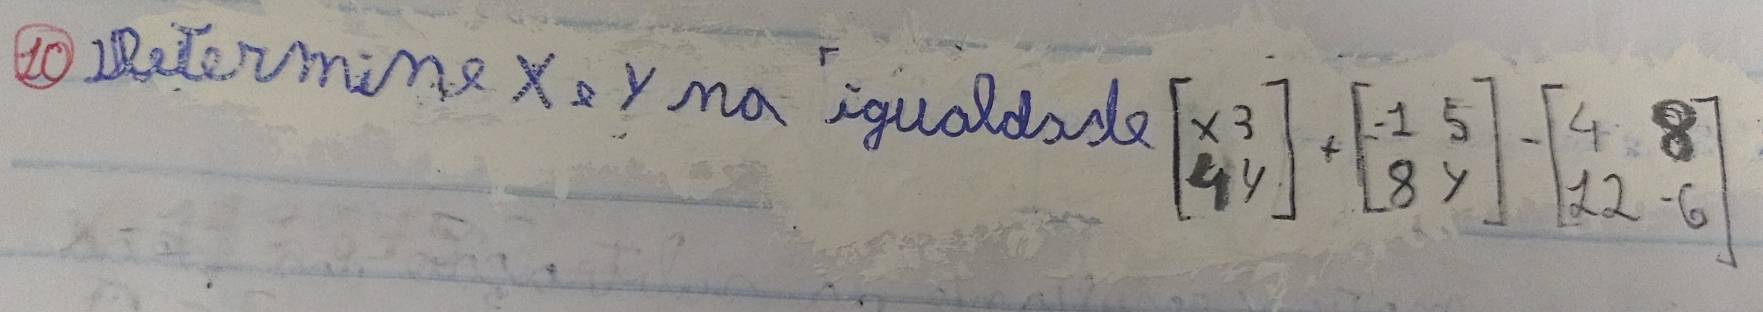 10 Determine X e Y na igualdade [x 3 4 y] + [-1 5 8 y] - [4 8 12 -6]